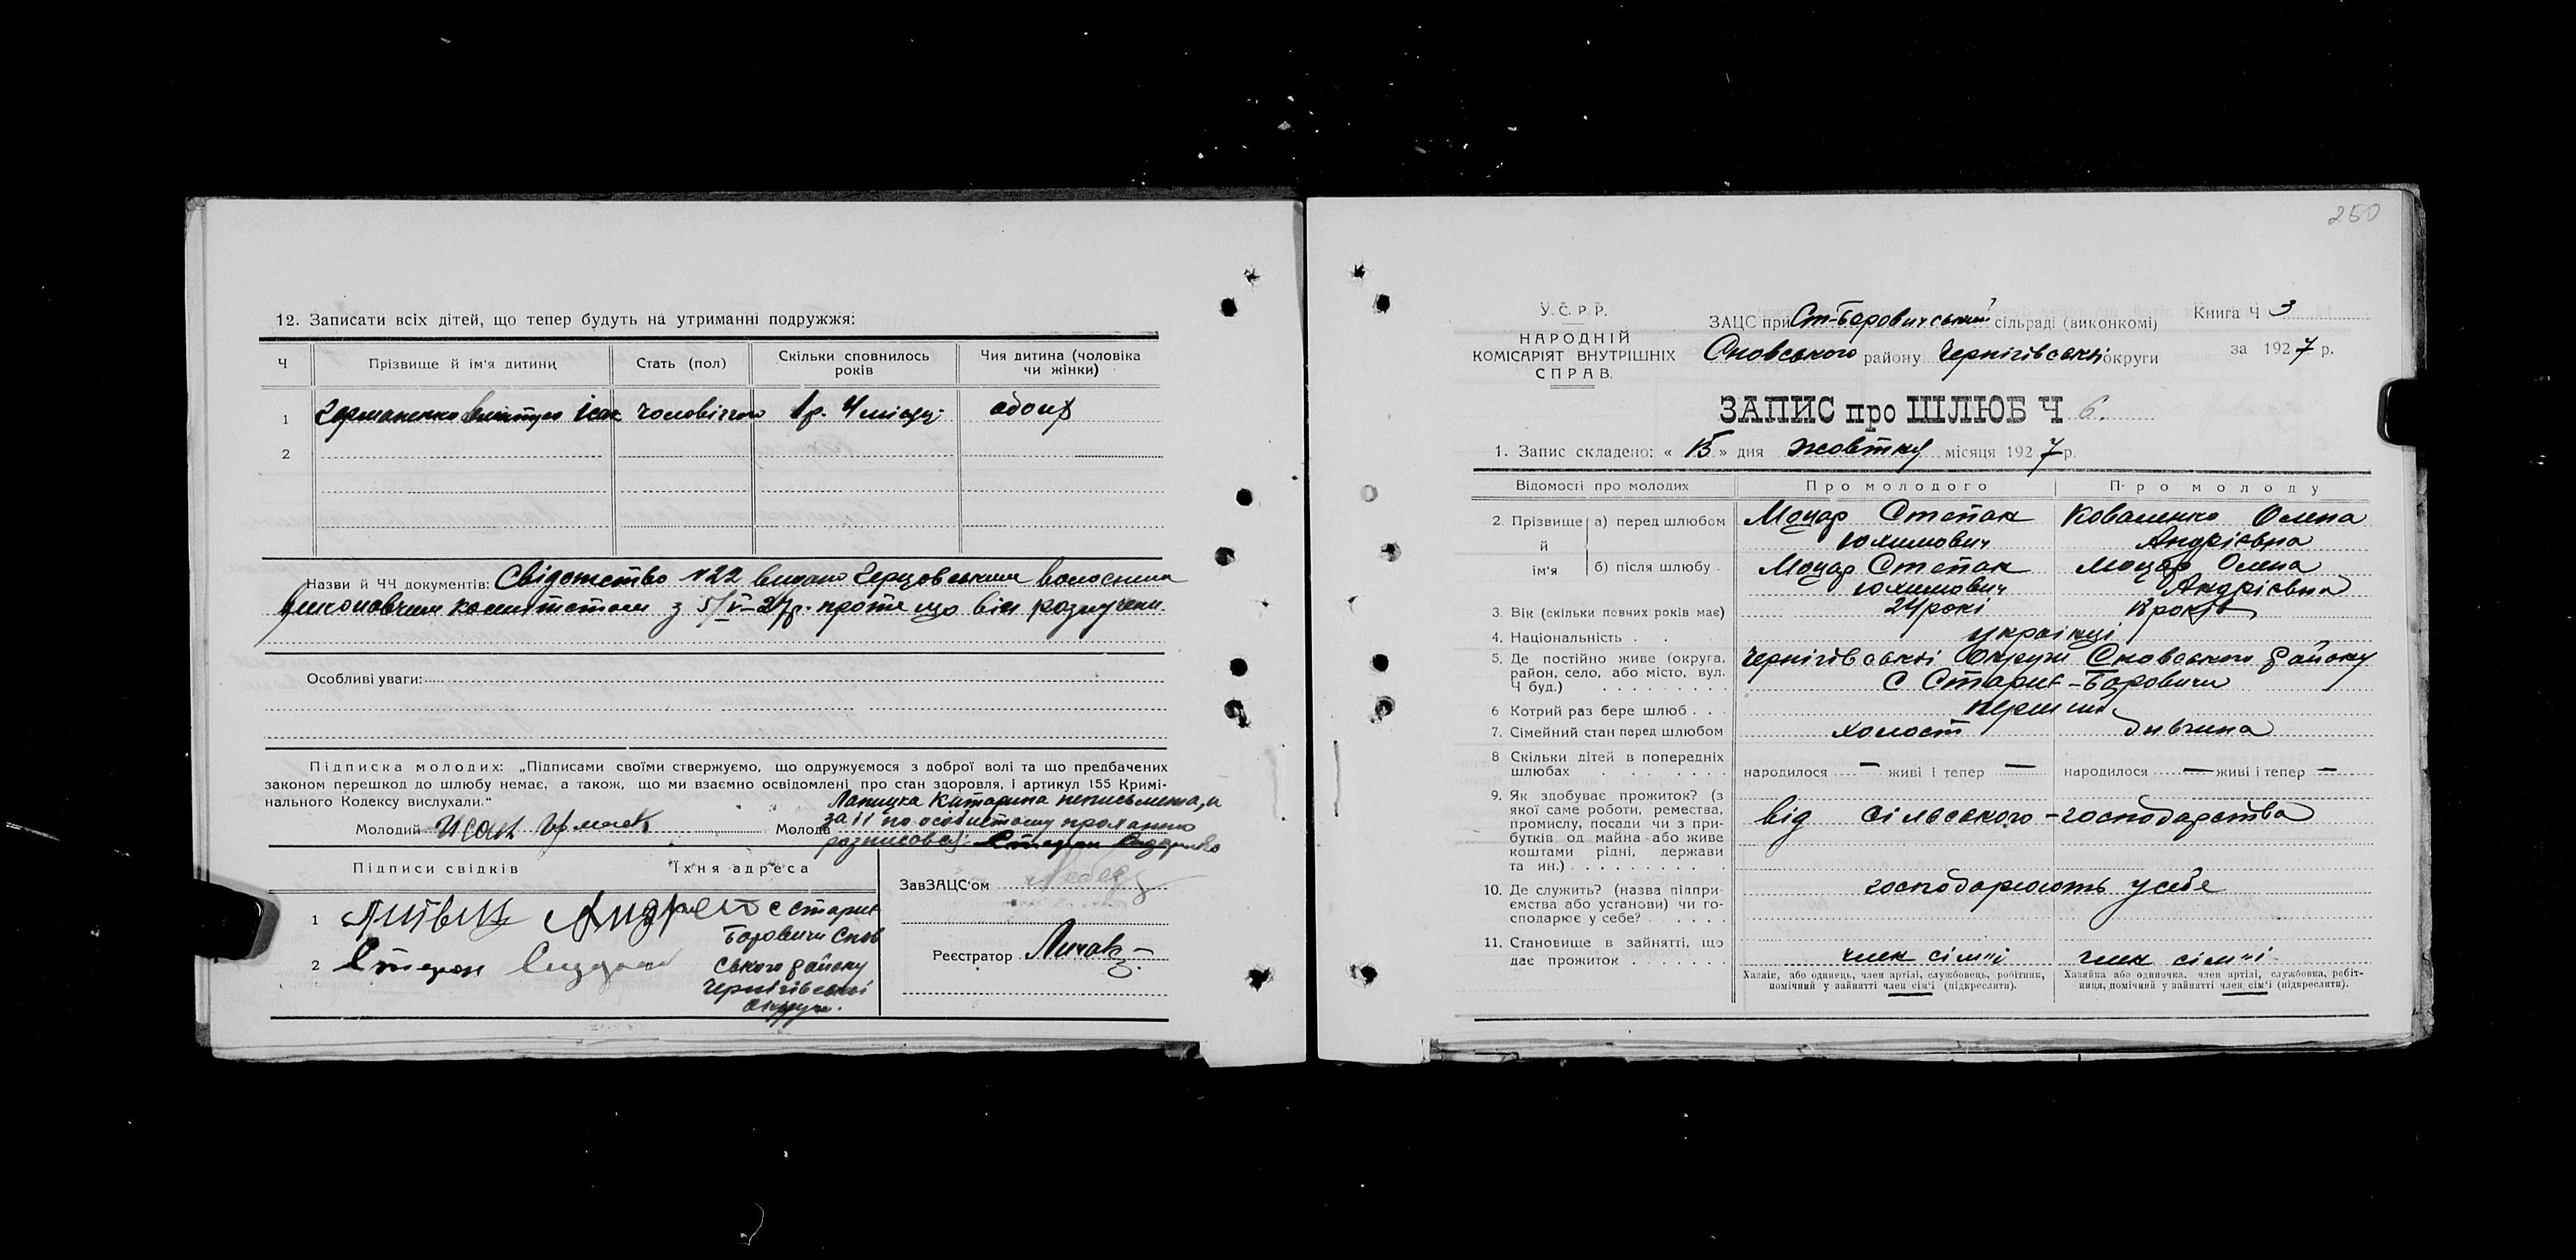 12. Записати всіх дітей, що тепер будуть на утриманні подружжя:
Ч Прізвище й ім'я дитини Стать (пол) Скільки сповнилось років Чия дитина (чоловіка чи жінки)
1 Германенко Ісак чоловіччого 1 р. 4 місяці обоих
2
Назви й ЧЧ документів: Свідотство №22 видано волосним
виконовчим комитетом з 5/V-27р. проте що він розлучени.
Особливі уваги:
Підписка молодих: „Підписами своїми стверджуємо, що одружуємося з доброї волі та що предбачених
законом перешкод до шлюбу немає, а також, що ми взаємно освідомлені про стан здоровля, і артикул 155 Кримі-
нального Кодексу вислухали."
Катарина неписьменна, и
за її по особистому проханню
Молодий Исак Молода
розписовся: Степан
Підписи свідків Їхня адреса
ЗавЗАЦС'ом
1 Литвин Андрей с Старые
Боровичи Снов
2 Степан ського району
Чернігівські
Округи.
Реєстратор
250
У. С. Р. Р.
НАРОДНІЙ
КОМІСАРІЯТ ВНУТРІШНІХ
СПРАВ.
ЗАЦС при Ст-Боровичський сільраді (виконкомі)
Сновського району Чернігівські округи
Книга Ч 3
за 1927 р.
ЗАПИС про ШЛЮБ Ч 6.
1. Запис складено: « 13 » дня жовтня місяця 1927 р.
Відомості про молодих Про молодого Про молоду
2. Прізвище й ім'я а) перед шлюбом Моцар Степан Юхимович Коваленко Олена Андрієвна
б) після шлюбу Моцар Степан Юхимович Моцар Олена Андрієвна
3. Вік (скільки повних років має) 24 рокі 18 років
4. Національність українці
5. Де постійно живе (округа, район, село, або місто, вул. Ч буд.) Чернігівські Округи Сновського району
с Старые-Боровичи
6 Котрий раз бере шлюб перший
7. Сімейний стан перед шлюбом холост дивчина
8 Скільки дітей в попередніх шлюбах народилося — живі і тепер — народилося — живі і тепер —
9. Як здобуває прожиток? (з
якої саме роботи, ремества,
промислу, посади чи з при-
бутків од майна або живе
коштами рідні, держави
та ин.) від сільського-господарства
10. Де служить? (назва підпри-
ємства або установи) чи го-
сподарює у себе? господарюють у себе
11. Становище в зайнятті, що
дає прожиток член сім'ї член сім'ї
Хазяїн, або одинець, член артілі, службовець, робітник,
помічний у зайнятті член сім'ї (підкреслити).
Хазяйка або одиночка, член артілі, службовка, робіт-
ниця, помічний у зайнятті член сім'ї (підкреслити).